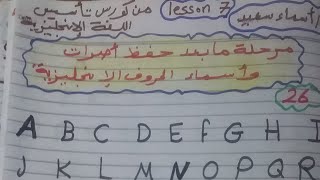 أسماء سعيد
lesson 7
من كورس تأسيس
اللغة الإنجليزية
مرحلة ما بعد حفظ أصوات
وأسماء الحروف الإنجليزية
26
A B C D E F G H I
J K L M N O P Q R